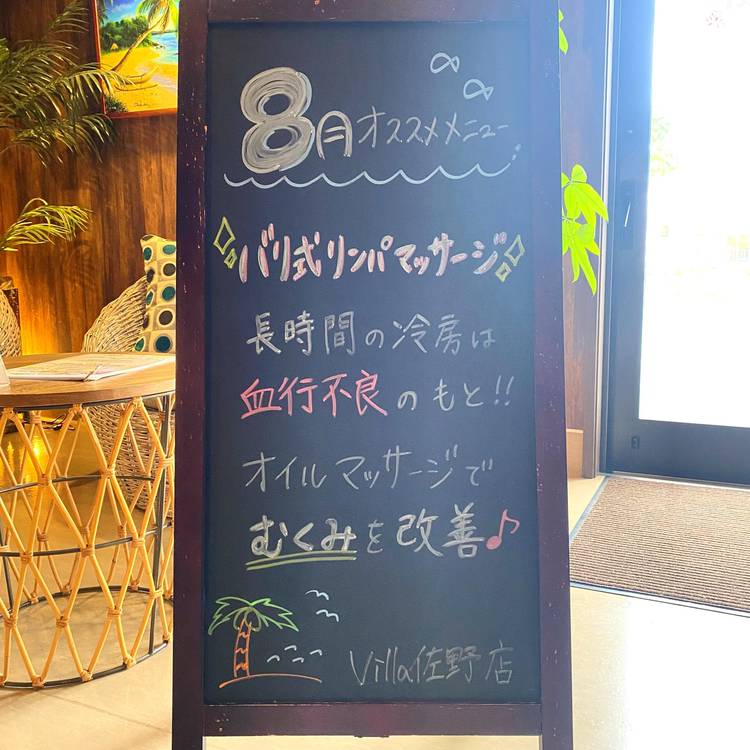 8月オススメメニュー
バリ式リンパマッサージ
長時間の冷房は
血行不良のもと!!
オイルマッサージで
むくみを改善♪
Villa佐野店